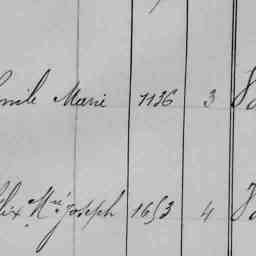 Emile Marie 1136 3
Félix Mie Joseph 1653 4